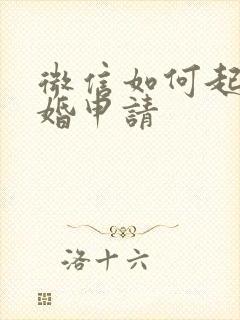 微信如何起
婚申請
洛十六